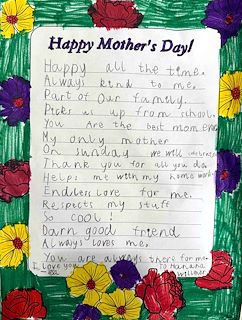 Happy Mother's Day!
Happy all the time.
Always kind to me.
Part of Our family.
Picks us up from school.
You Are the best mom ever
My only mother
On sunday we will celebrate
Thank you for all you do.
Helps me with my home work
Endless love for me.
Respects my stuff
So cool!
Darn good friend
Always loves me.
You are always there for me.
I love you
To Hanaka